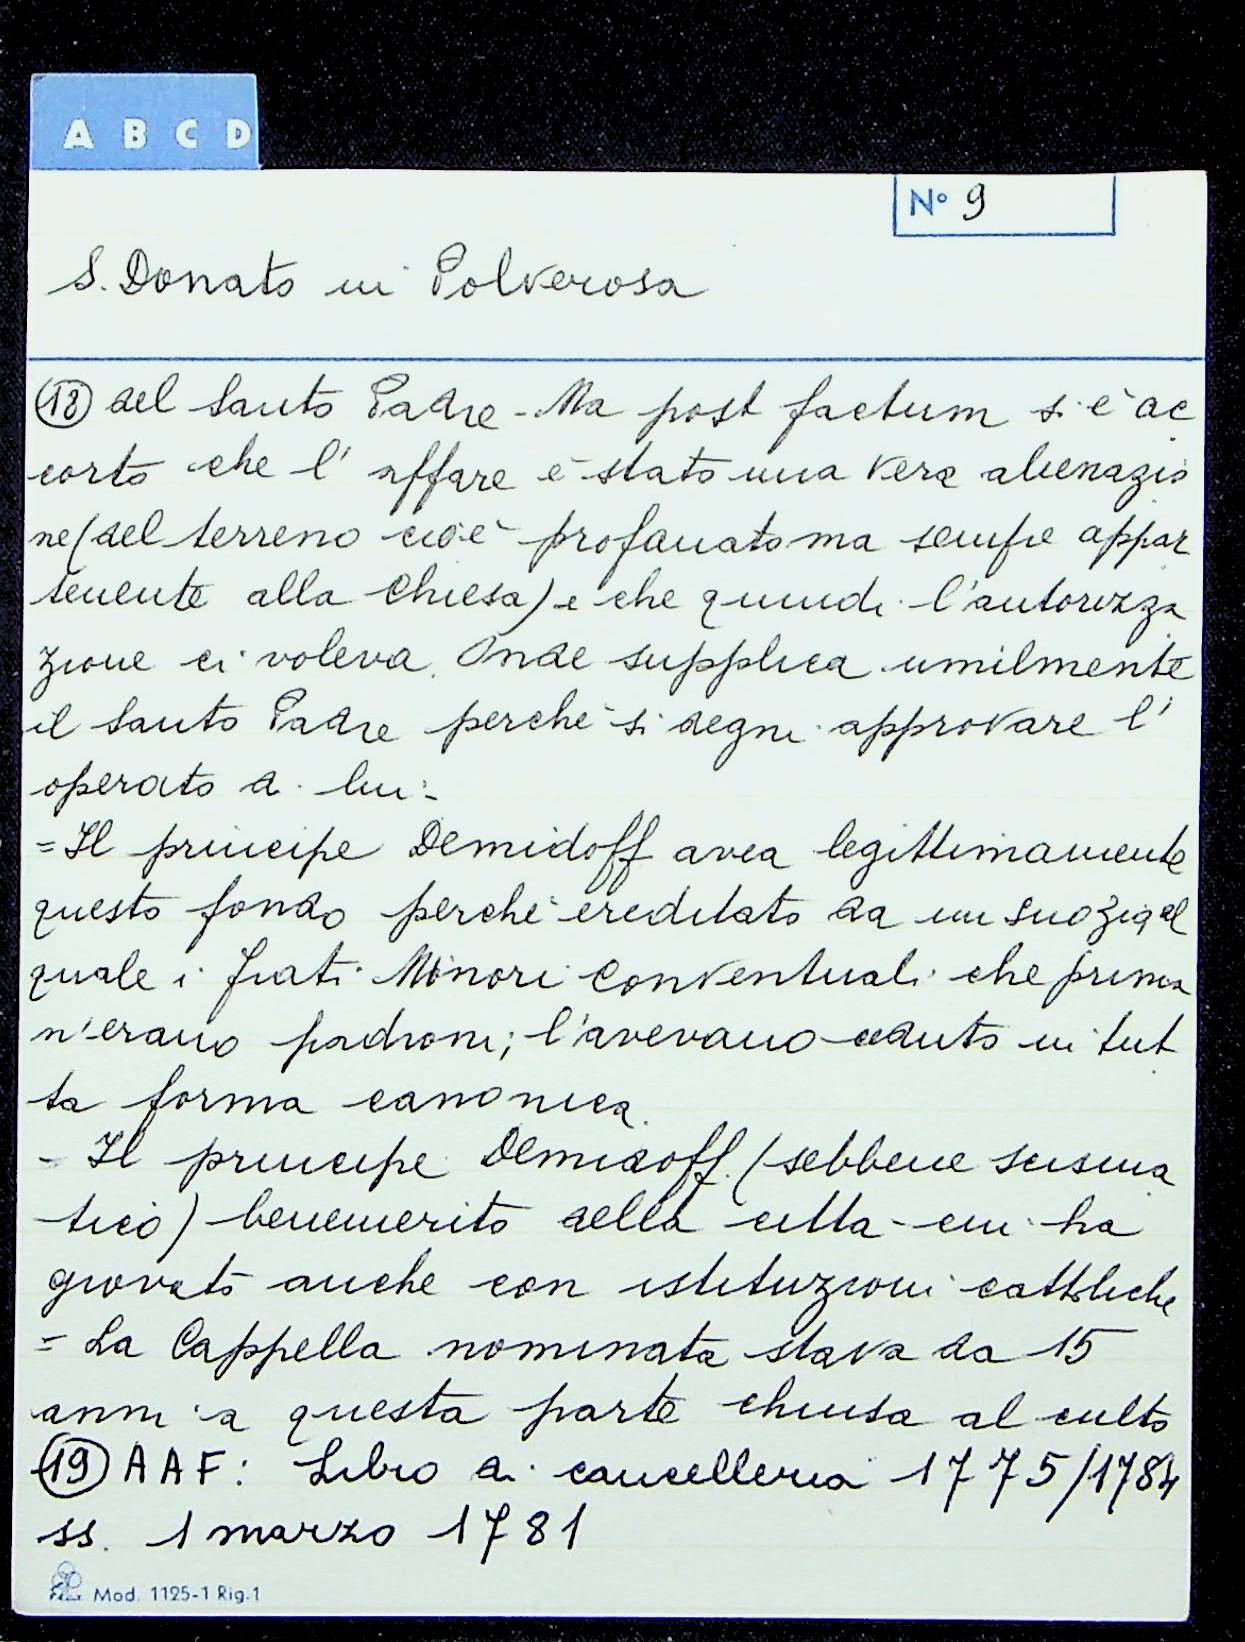 A B C D
N° 9
S. Donato in Polverosa
(18) del Santo Padre - Ma post factum si è ac
corto che l'affare è stato una vera alienazio
ne (del terreno cioè profanato ma sempre appar
tenente alla Chiesa) e che quindi l'autorizza
zione ci voleva. Onde supplica umilmente
il Santo Padre perchè si degni approvare l'
operato di lui -
= Il principe Demidoff avea legittimamente
questo fondo perchè ereditato da un suo zio al
quale i frati Minori Conventuali che prima
n'erano padroni; l'avevano ceduto in tut
ta forma canonica.
- Il principe Demidoff (sebbene scisma
tico) benemerito della città - cui ha
giovato anche con istituzioni cattoliche
= La Cappella nominata stava da 15
anni a questa parte chiusa al culto
(19) A A F: Libro di cancelleria 1775/1784
ss. 1 marzo 1781
Mod. 1125-1 Rig.1